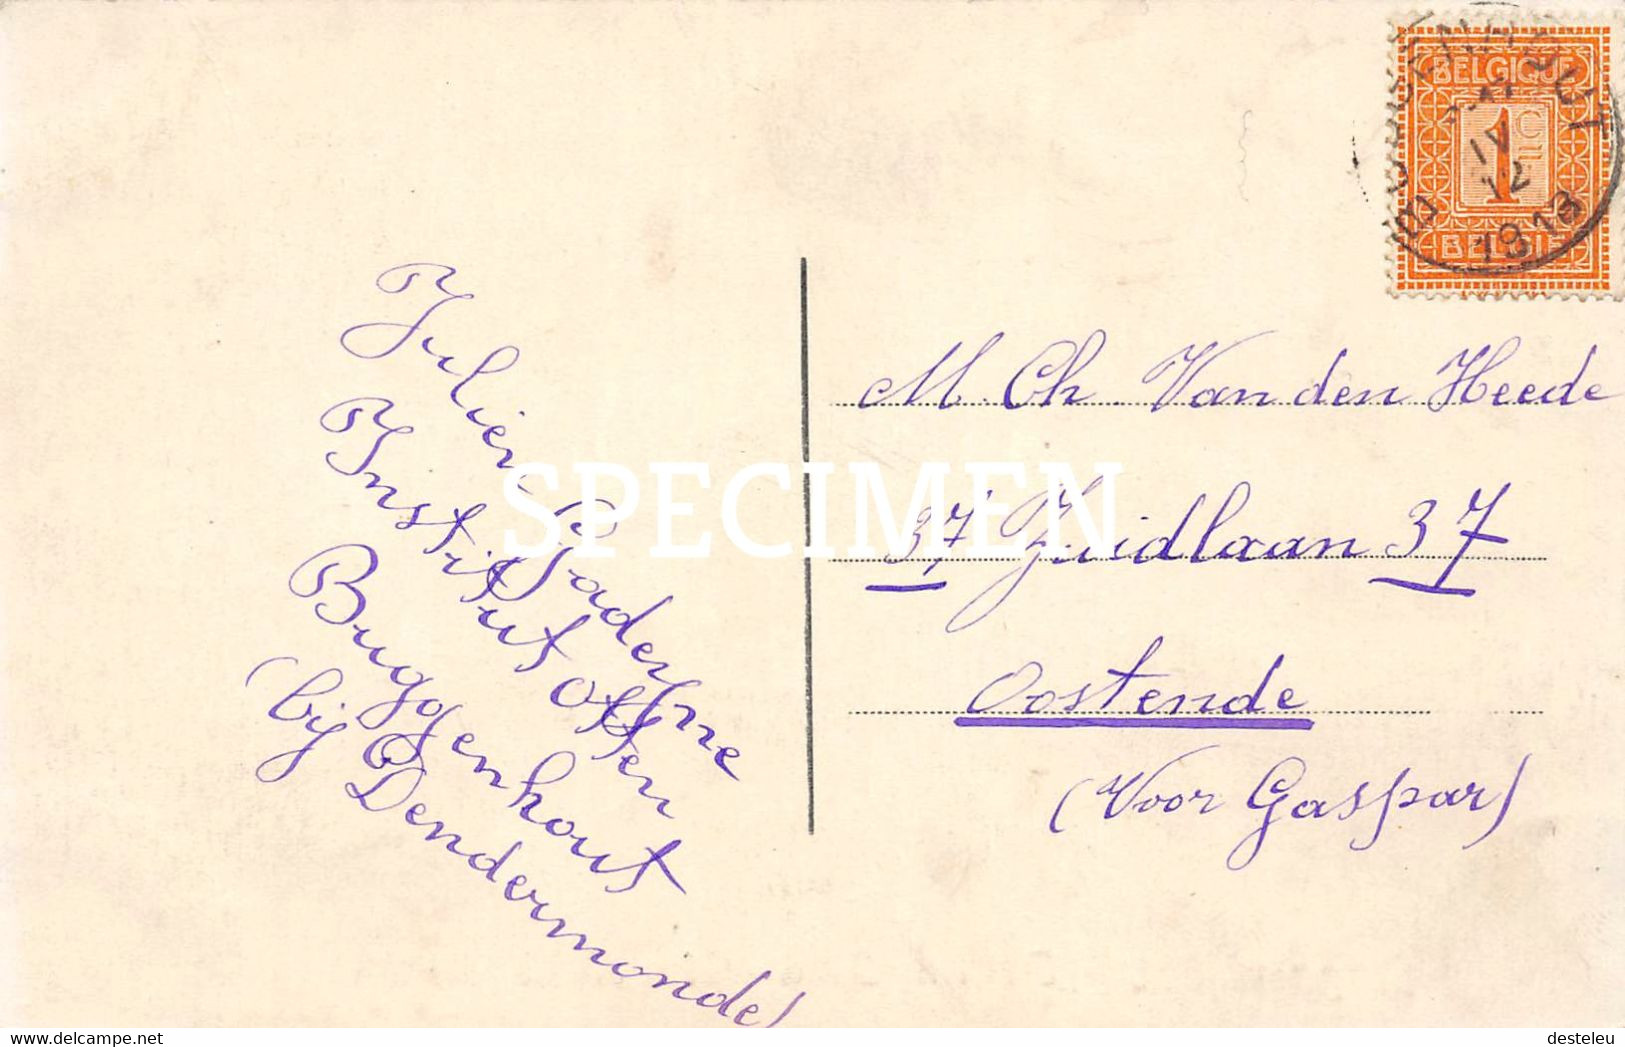 BELGIQUE
1 C
BELGIË
BUGGENHOUT
IV
12
1913
Julien
Instituut
Buggenhout
(bij Dendermonde)
SPECIMEN
M. Ch. Van den Heede
37, Zuidlaan 37
Oostende
(Voor Gaspar)
http://www.delcampe.net
desteleu